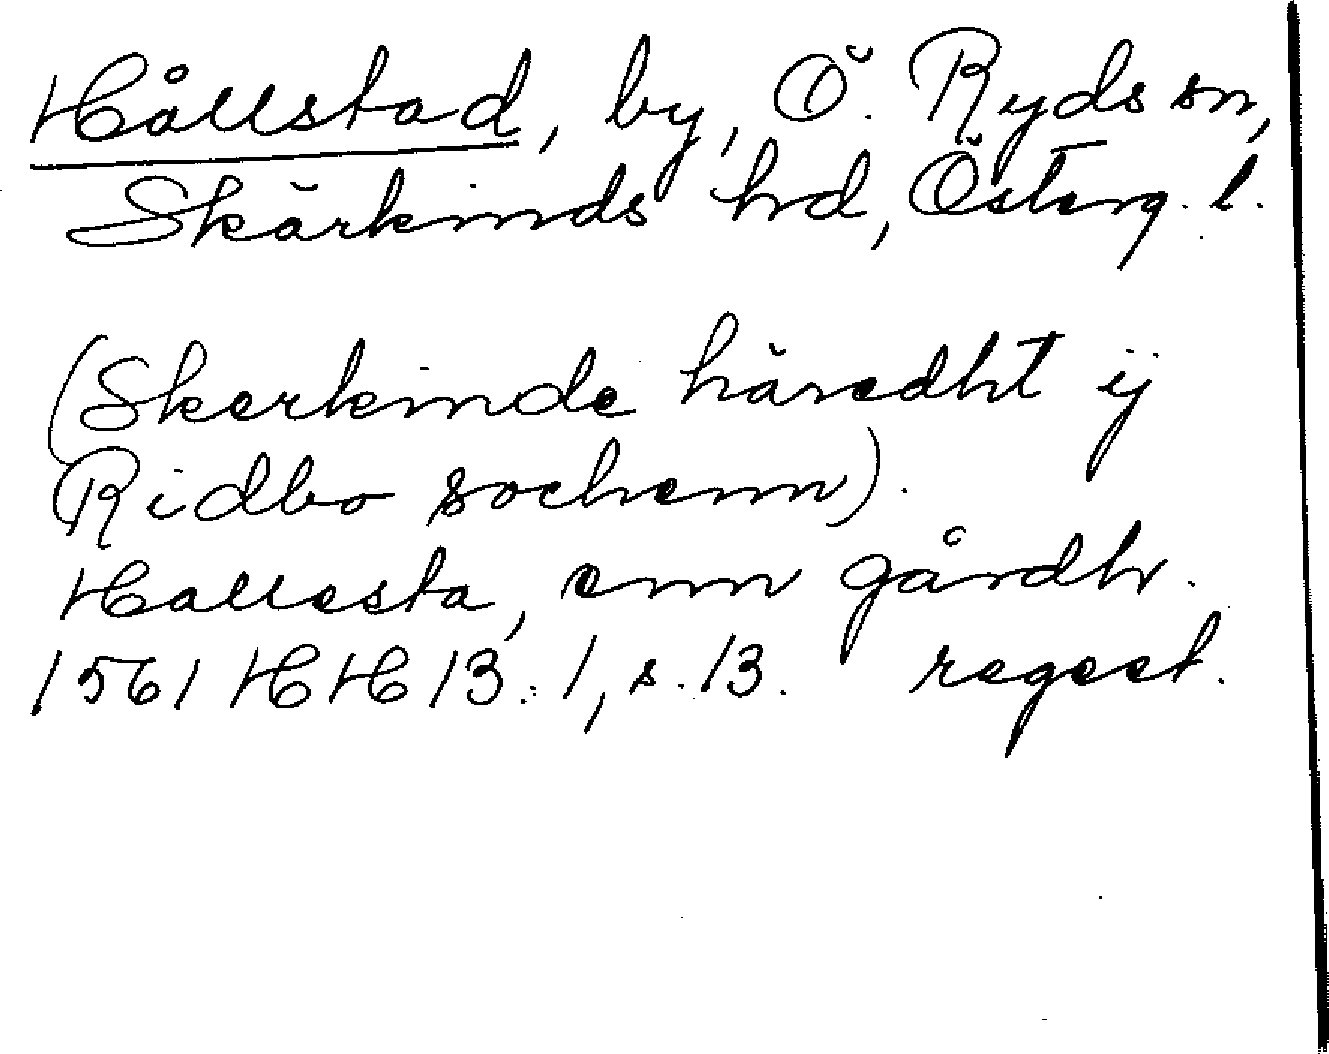 Hållstad, by, Ö. Ryds sn,
Skärkinds hd, Österg. l.
(Skerkinde häredht ij
Ridbo sochenn).
Hallesta, enn gårdh.
1561 HH 13:1, s. 13. regest.